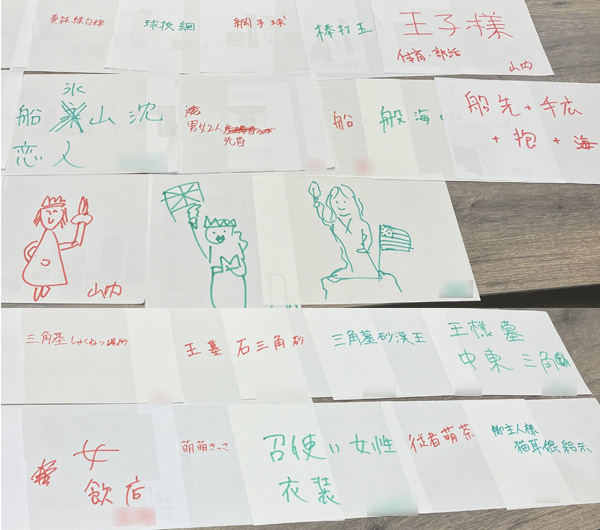 球技網
綱手球
棒打玉
王子様
体育・部活
山内
船 氷山沈
恋人
男女2人
先首
船
般 海
船先+手広
+抱+海
山内
三角墓しゃくねつ場所
王墓
石三角砂
三角墓砂漠王
王様墓
中東三角
女
飲店
萌萌きっさ
召使い女性
衣装
従者萌茶
御主人様
猫耳
給示